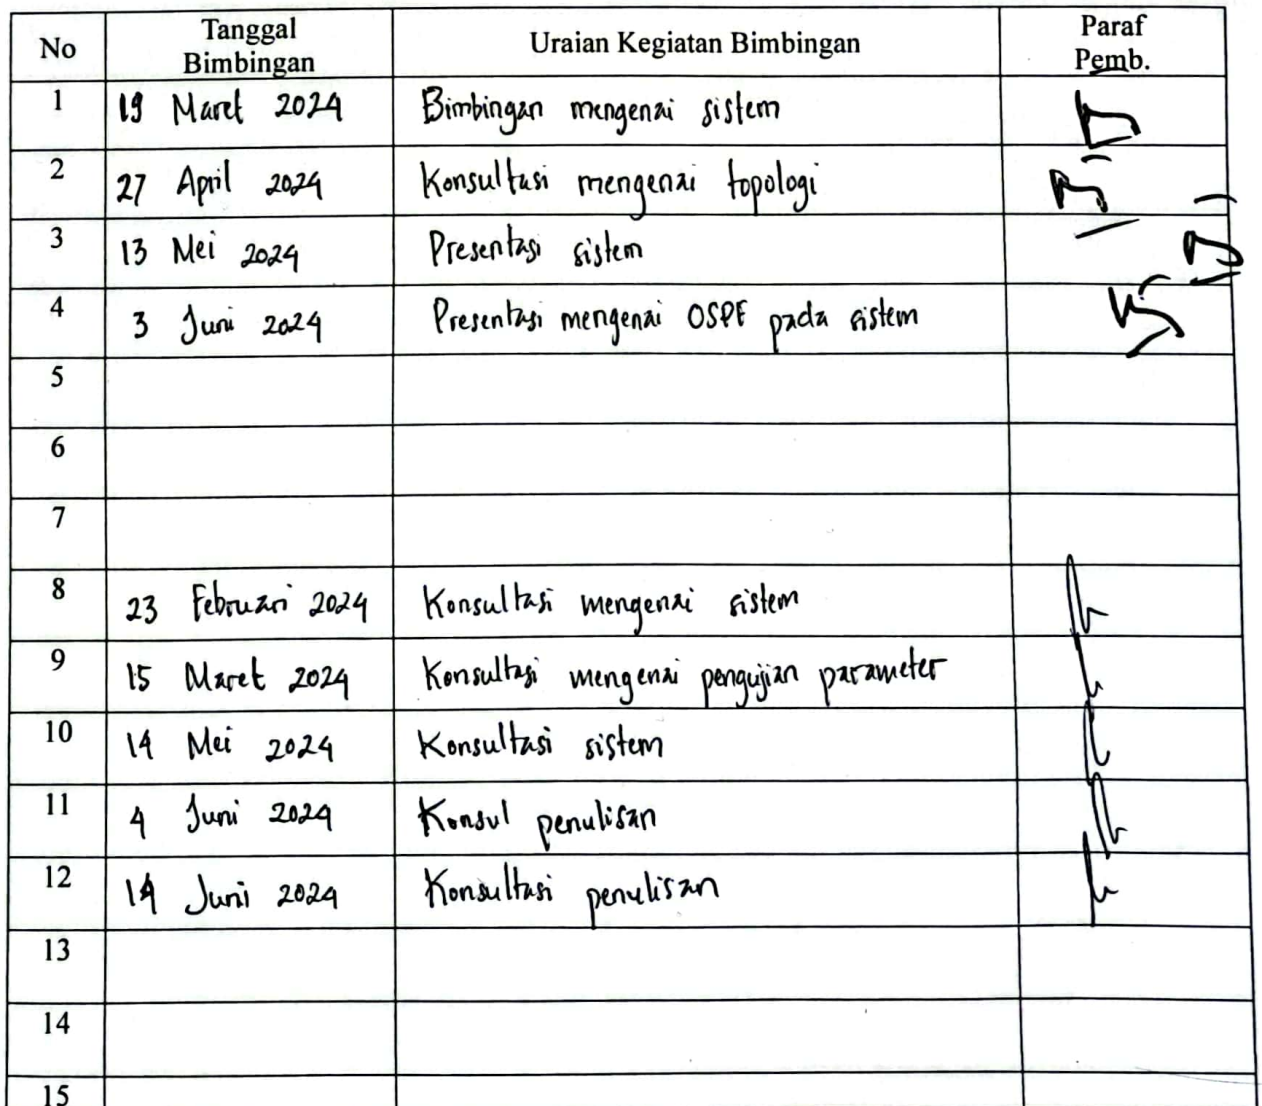 No Tanggal Bimbingan Uraian Kegiatan Bimbingan Paraf Pemb.
1 19 Maret 2024 Bimbingan mengenai sistem
2 27 April 2024 Konsultasi mengenai topologi
3 13 Mei 2024 Presentasi sistem
4 3 Juni 2024 Presentasi mengenai OSPF pada sistem
5
6
7
8 23 Februari 2024 Konsultasi mengenai sistem
9 15 Maret 2024 Konsultasi mengenai pengujian parameter
10 14 Mei 2024 Konsultasi sistem
11 4 Juni 2024 Konsul penulisan
12 14 Juni 2024 Konsultasi penulisan
13
14
15